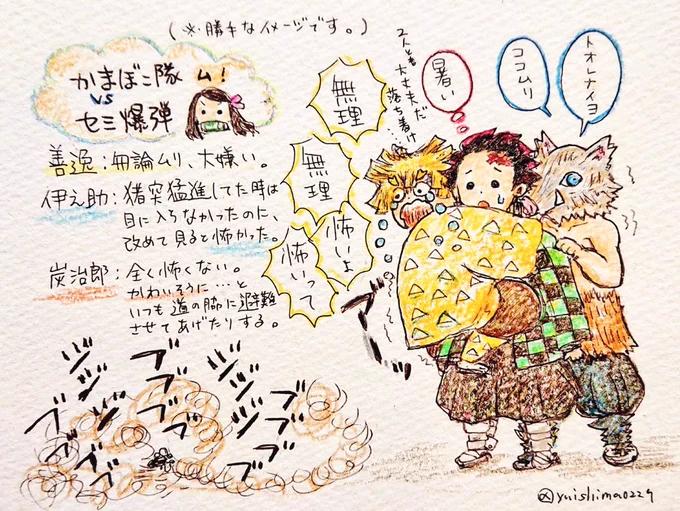 (※勝手なイメージです。)
かまぼこ隊
ム！
vs
セミ爆弾
善逸：無論ムリ、大嫌い。
伊之助：猪突猛進してた時は
目に入らなかったのに、
改めて見ると怖かった。
炭治郎：全く怖くない。
かわいそうに…と
いつも道の脇に避難
させてあげたりする。
トオレナイヨ
ココムリ
暑い
2人とも
大丈夫だ
落ち着け…
無理
無理
怖いよ
怖いって
ブブブッ
ジジジッ
ブブブブ
ジジジッ
ブブブ
@yuishima0229